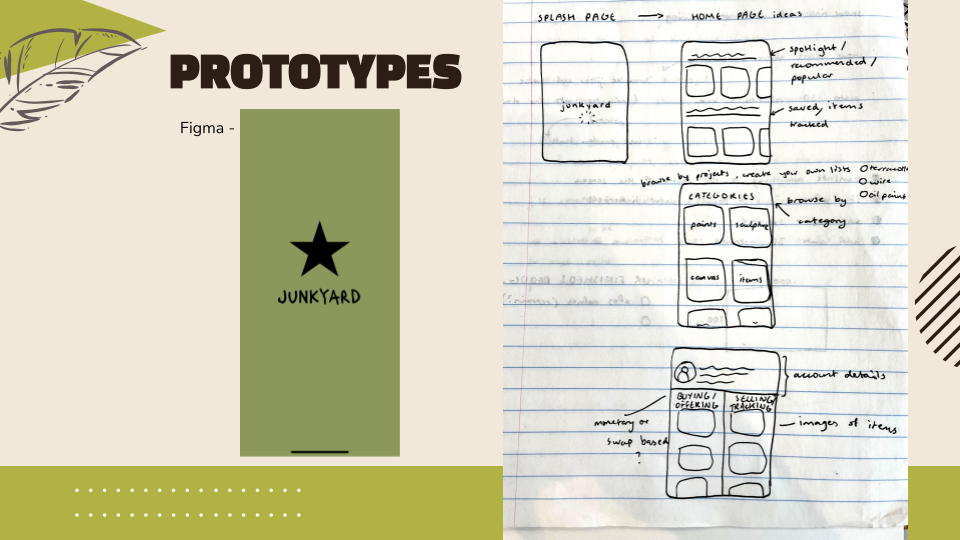 PROTOTYPES
Figma -
JUNKYARD
SPLASH PAGE
HOME PAGE ideas
junkyard
spotlight /
recommended /
popular
saved, items
tracked
browse by projects, create your own lists
wire
oil paint
CATEGORIES
browse by
category
paints
sculpture
canvas
items
account details
BUYING/
OFFERING
SELLING/
TRACKING
monetary or
swap based
?
images of items